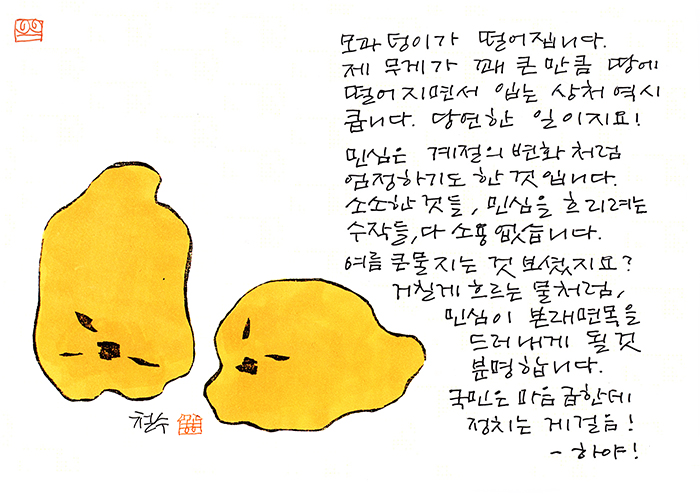 모과 덩이가 떨어집니다.
제 무게가 꽤 큰 만큼 땅에
떨어지면서 입는 상처 역시
큽니다. 당연한 일이지요!
민심은 계절의 변화처럼
엄정하기도 한 것입니다.
소소한 것들, 민심을 흐리려는
수작들, 다 소용 없습니다.
여름 큰물 지는 것 보셨지요?
거칠게 흐르는 물처럼,
민심이 본래면목을
드러내게 될 것
분명합니다.
국민은 마음 급한데
정치는 게걸음!
- 하야!
철수